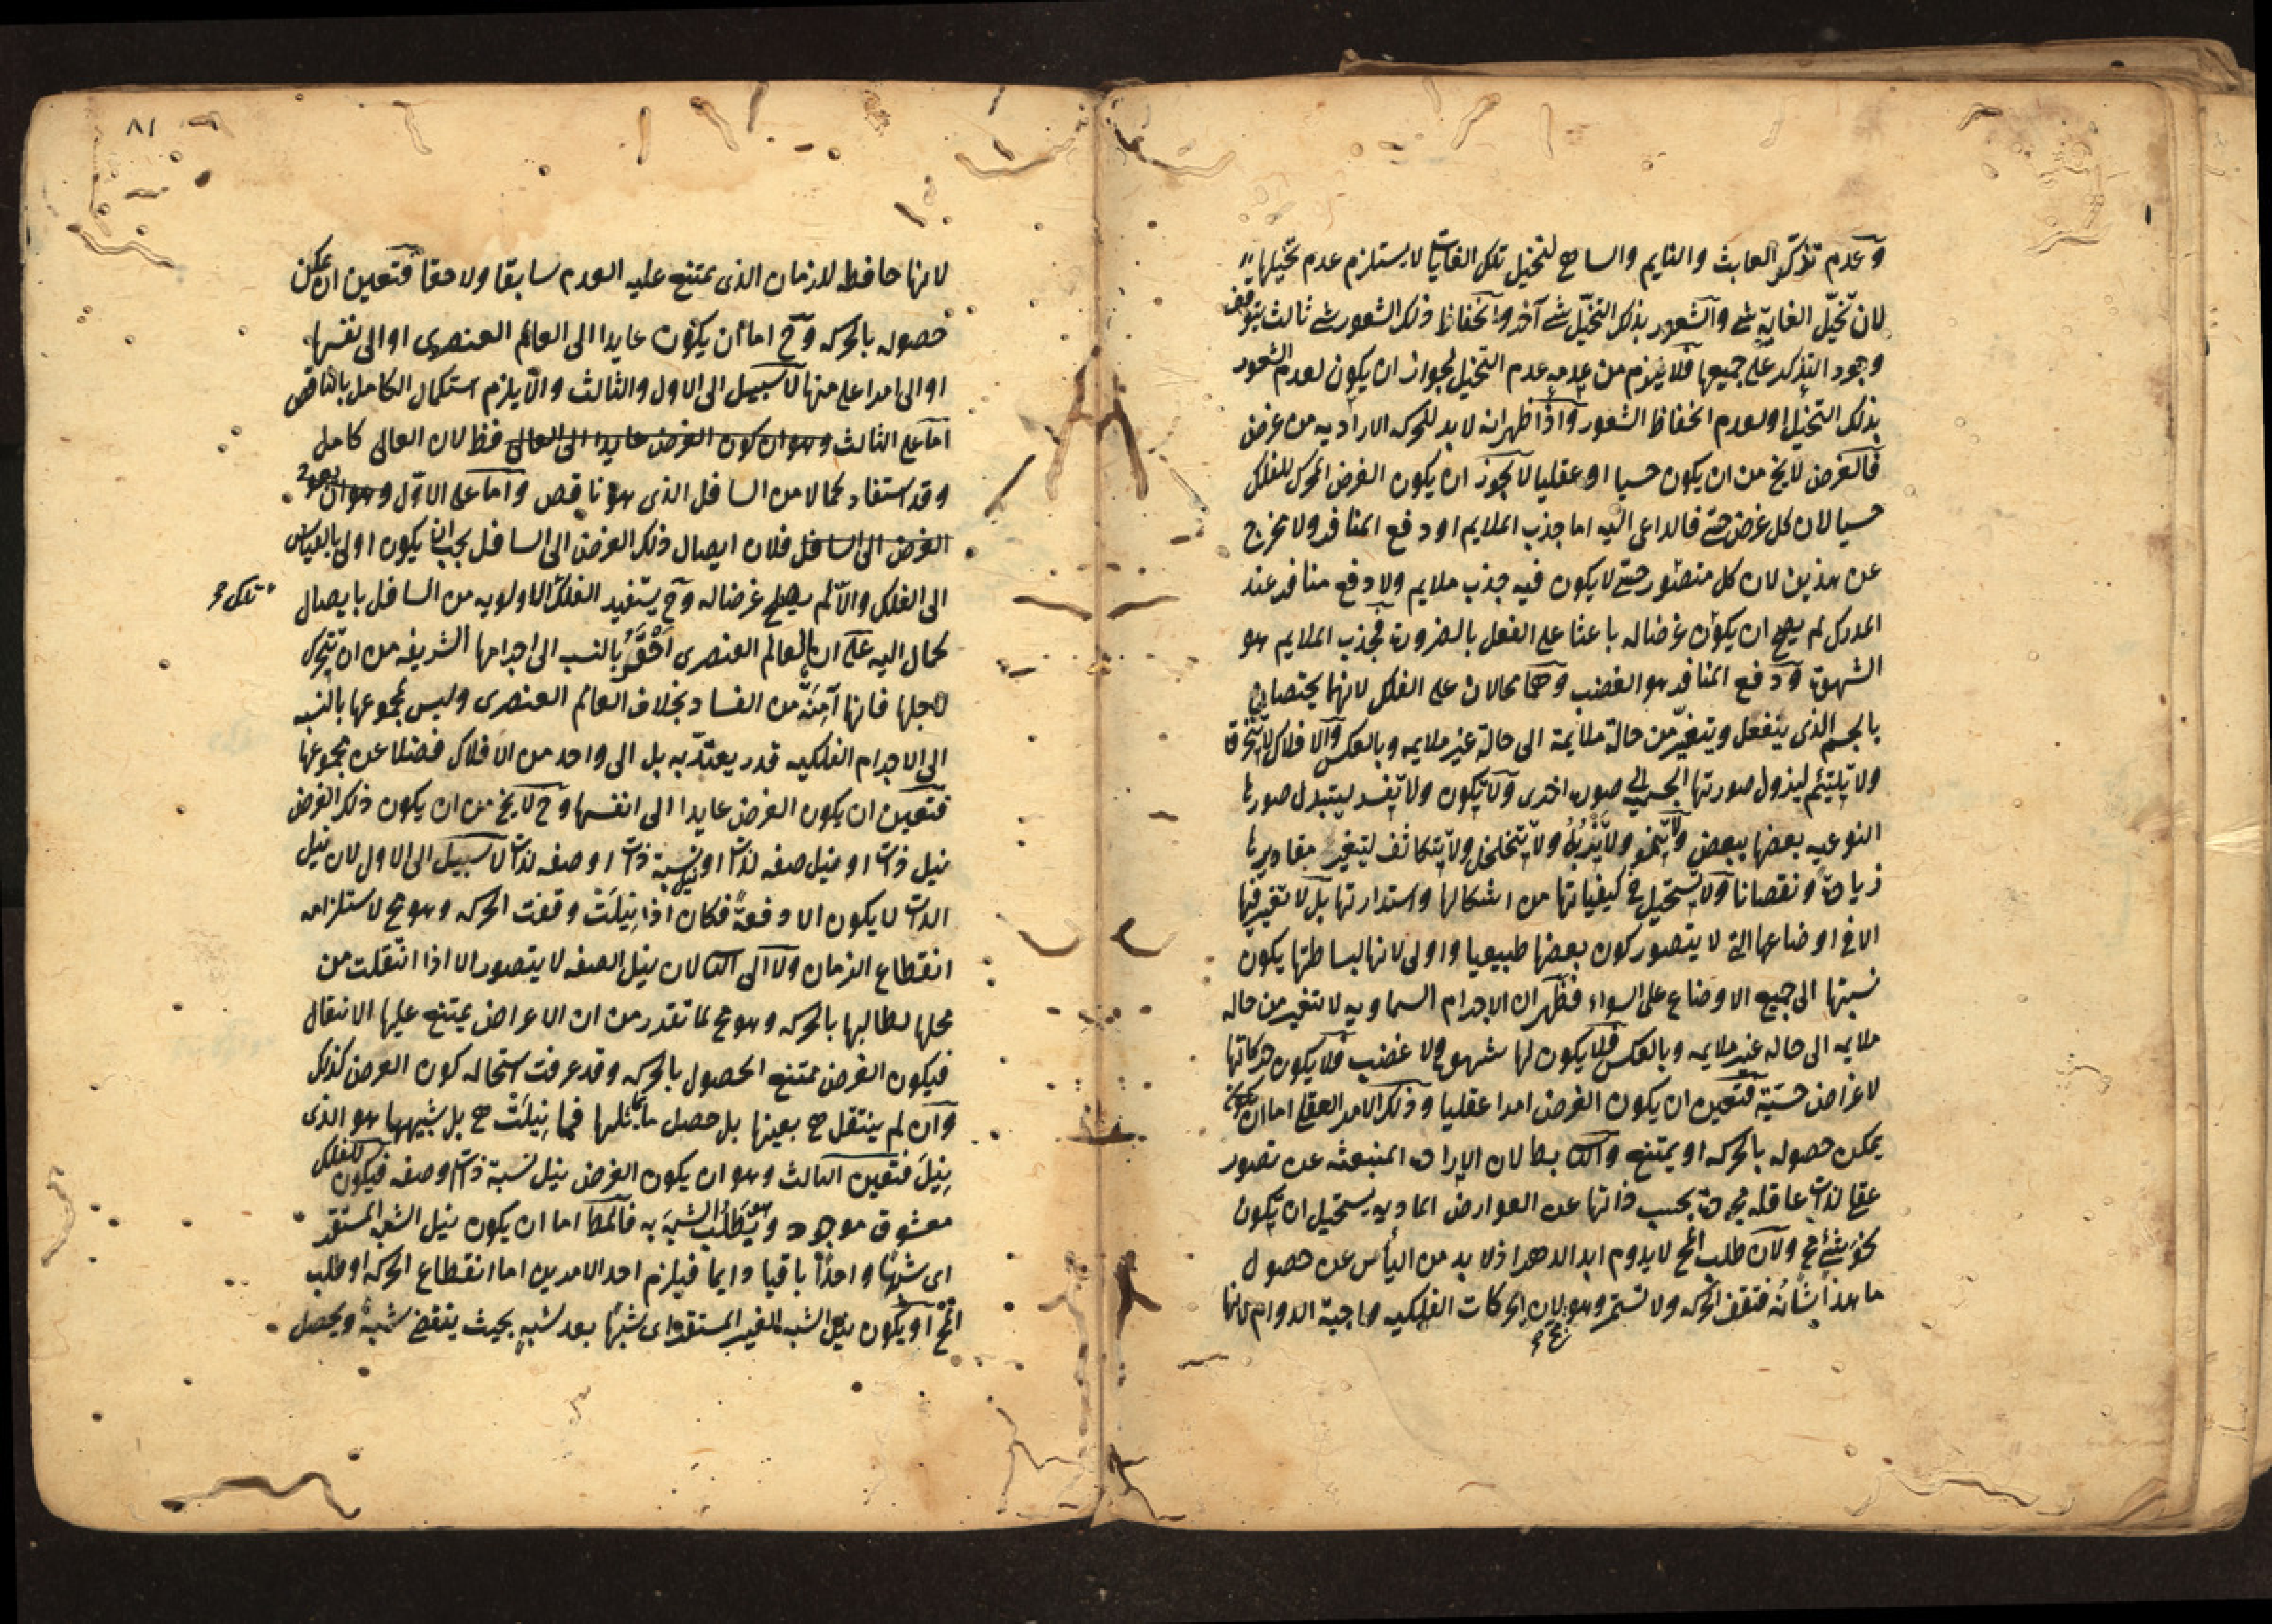 وعدم تذكّر العابث والنايم والساهى لتخيل تلك الغايات لا يستلزم عدم تخيلها
لان تخيّل الغاية شئ والشعور بذلك التخيّل شئ آخر وانحفاظ ذلك الشعور شئ ثالث يتوقف
وجود التذكر على جميعها فلا يلزم من عدمه عدم التخيل لجواز ان يكون لعدم الشعور
بذلك التخيل او لعدم انحفاظ الشعور واذا ظهر انه لا بد للحركه الاراديه من غرض
فالغرض لا يخ من ان يكون حسيا او عقليا لا يجوز ان يكون الغرض المحرك للفلك
حسيا لان كل غرض حسّى فالداعى اليه اما جذب الملايم او دفع المنافر ولا مخرج
عن هذين لان كل متصور حسّى لا يكون فيه جذب ملايم ولا دفع منافر عند
المدرك لم يصح ان يكون غرضا له باعثا على الفعل بالضرورة فجذب الملايم هو
الشهوة ودفع المنافر هو الغضب وهما محالان على الفلك لانهما يختصان
بالجسم الذى ينفعل ويتغيّر من حالة ملايمة الى حالة غير ملايمه وبالعكس والافلاك لا تنخرق
ولا يلتئم ليزول صورتها الجسميه الى صورة اخرى ولا تكون ولا تفسد ليتبدل صورها
النوعيه بعضها ببعض ولا تنمو ولا تذبل ولا تتخلخل ولا تتكاثف ليتغير مقاديرها
زيادة ونقصانا ولا تستحيل فى كيفياتها من اشكالها واستدارتها بل لا تتغير فيها
الا فى اوضاعها التى لا يتصور كون بعضها طبيعيا واولى لانها لبساطتها يكون
نسبتها الى جميع الاوضاع على السواء فظهر ان الاجرام السماويه لا تتغير من حاله
ملايمه الى حاله غير ملايمه وبالعكس فلا يكون لها شهوة ولا غضب فلا يكون حركاتها
لاغراض حسّيّة فتعين ان يكون الغرض امرا عقليا وذلك الامر العقلى اما ان يكون
يمكن حصوله بالحركه او يمتنع والثانى بط لان الارادة المنبعثه عن تصور
عقلى لذات عاقله مجردة بحسب ذاتها عن العوارض الماديه يستحيل ان يكون
نحو شئ مح ولان طلب المح لا يدوم ابد الدهر اذ لا بد من الياس عن حصول
ما هذا شأنه فتقف الحركه ولا تستمر وهو مح لان الحركات الفلكيه واجبة الدوام لانها
٨١
لانها حافظه للزمان الذى يمتنع عليه العدم سابقا ولاحقا فتعين ان يمكن
حصوله بالحركه وح اما ان يكون عايدا الى العالم العنصرى او الى نفسها
او الى امر اعلى منها لا سبيل الى الاول والثالث والا يلزم استكمال الكامل بالناقص
اما على الثالث وهو ان كون الغرض عايدا الى العالى فظ لان العالى كامل
وقد استفاد كمالا من السافل الذى هو ناقص واما على الاوّل وهو ان يعود
الغرض الى السافل فلان ايصال ذلك الغرض الى السافل يجب ان يكون اولى بالقياس
الى الفلك والا لم يصلح غرضا له وح يستفيد الفلك تلك الاولويه من السافل بايصال
كمال اليه على ان العالم العنصرى احقر بالنسب الى اجرامها الشريفه من ان تتحرك
لاجلها فانها آمنة من الفساد بخلاف العالم العنصرى وليس لمجموعها بالنسبه
الى الاجرام الفلكيه قدر يعتدّ به بل الى واحد من الافلاك فضلا عن مجموعها
فتعين ان يكون الغرض عايدا الى انفسها وح لا يخ من ان يكون ذلك الغرض
نيل ذات او نيل صفه لذات او نيل نسبة ذات او صفه لذات لا سبيل الى الاول لان نيل
الذات لا يكون الا دفعة فكان اذا نيلت وقفت الحركه وهو مح لاستلزامه
انقطاع الزمان ولا الى الثانى لان نيل الصفه لا يتصور الا اذا انتقلت من
محلها لطالبها بالحركه وهو مح لما تقرر من ان الاعراض يمتنع عليها الانتقال
فيكون الغرض ممتنع الحصول بالحركه وقد عرفت استحاله كون الغرض كذلك
وان لم ينتقل هى بعينها بل حصل ما يماثلها فما نيلت هى بل شبيهها هو الذى
نيل فتعين الثالث وهو ان يكون الغرض نيل نسبة ذات او صفه فيكون للفلك
معشوق موجود وهو يطلب الشبه به فالمط اما ان يكون نيل الشبه المستقر
اى شبها واحدا باقيا دايما فيلزم احد الامرين اما انقطاع الحركه او طلب
المح او يكون نيل الشبه الغير المستقر اى شبها بعد شبه بحيث ينقضى شبه ويحصل